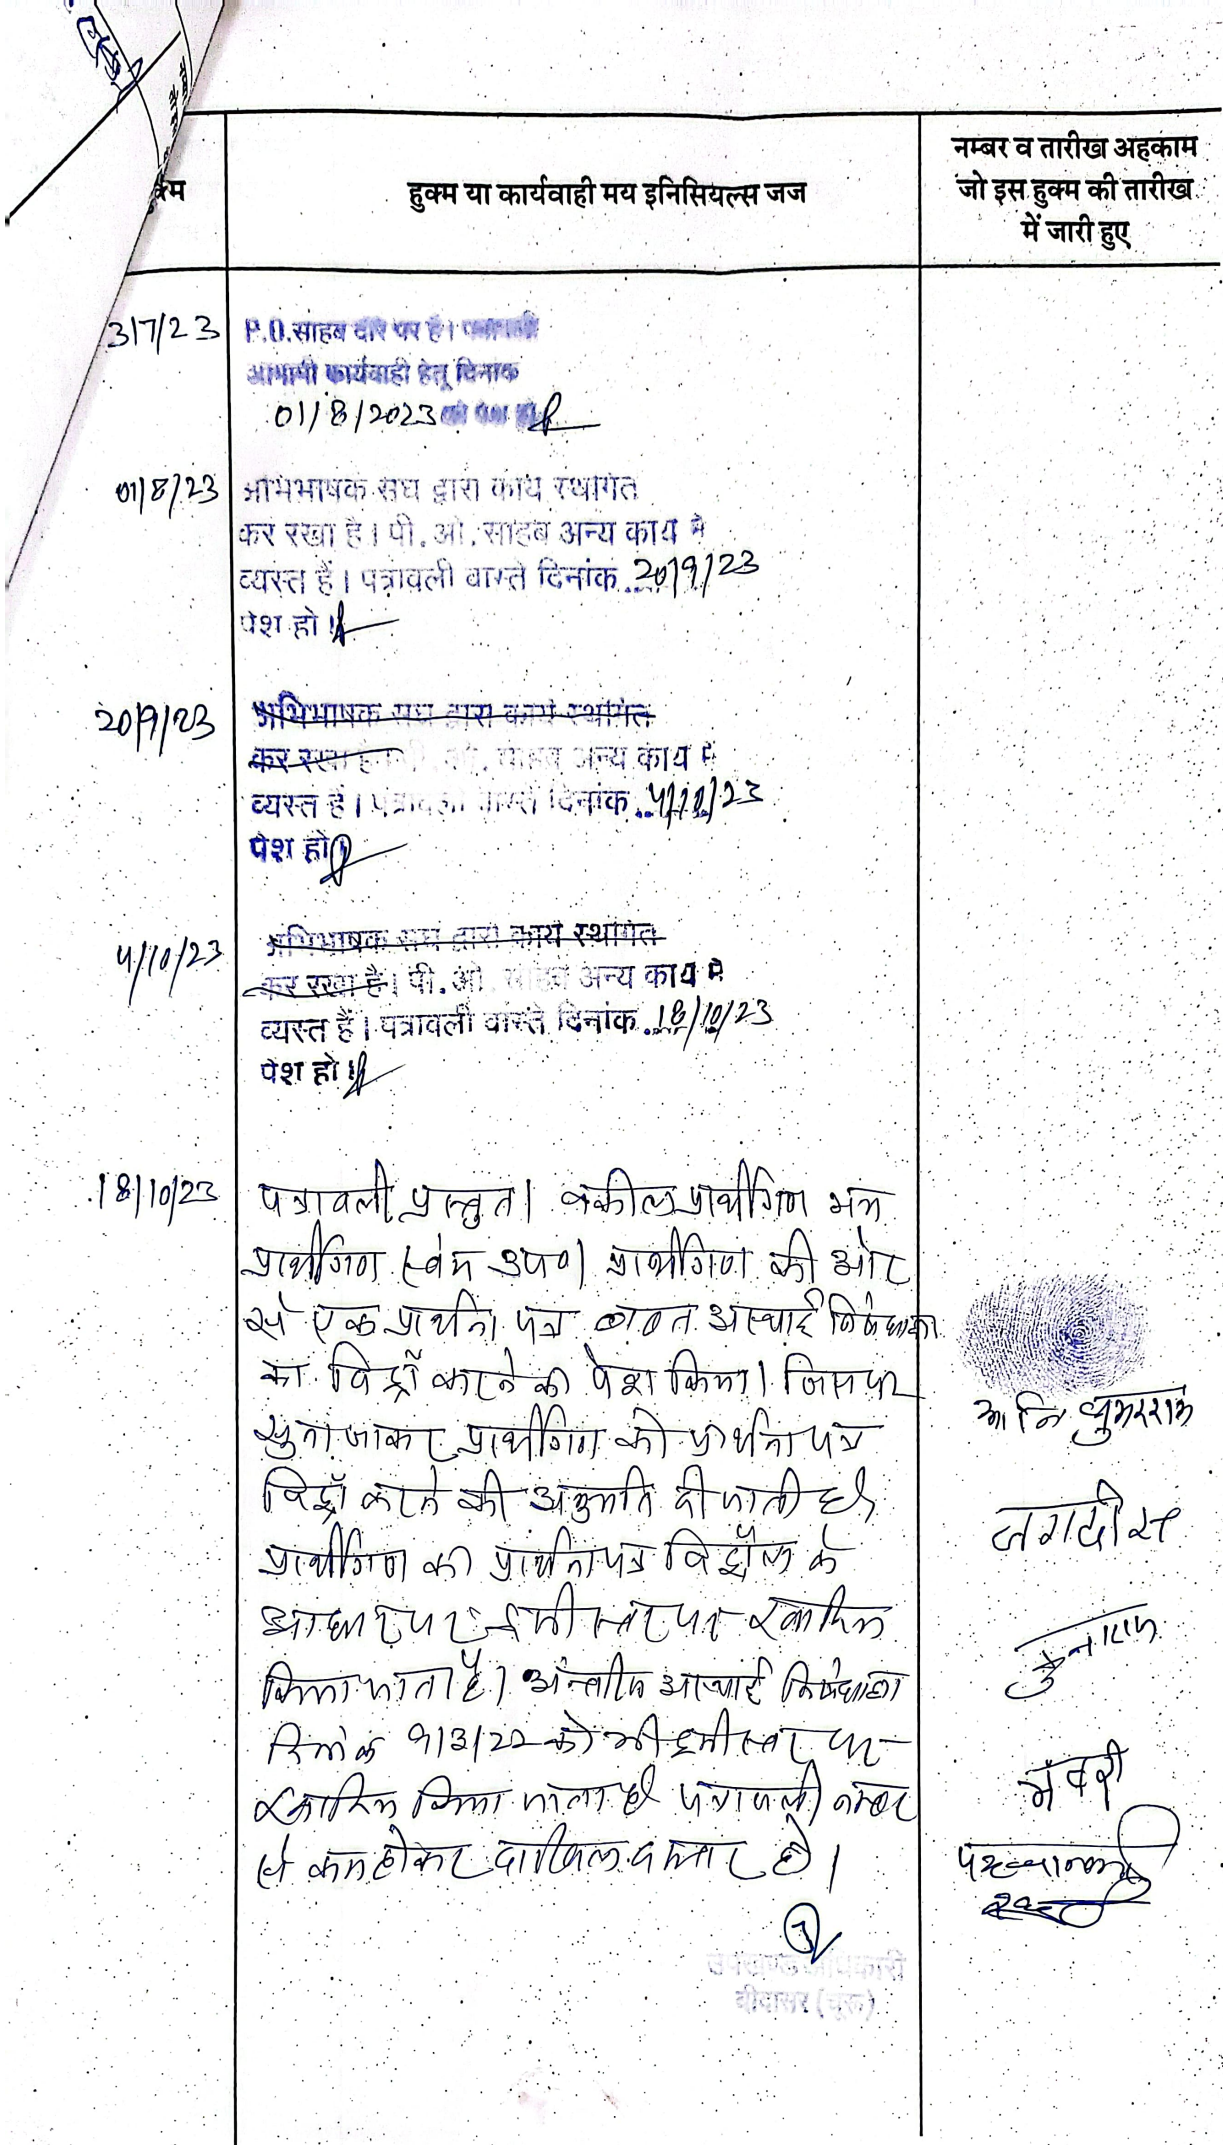 हुक्म या कार्यवाही मय इनिसियल्स जज
नम्बर व तारीख अहकाम
जो इस हुक्म की तारीख
में जारी हुए
3/7/23
P.O.साहब दौरे पर है। पत्रावली
आगामी कार्यवाही हेतू दिनांक
01/8/2023 को पेश हो
01/8/23
अभिभाषक संघ द्वारा कार्य स्थगित
कर रखा है। पी. ओ. साहब अन्य कार्य में
व्यस्त हैं। पत्रावली वास्ते दिनांक 20/9/23
पेश हो।
20/9/23
अभिभाषक संघ द्वारा कार्य स्थगित
कर रखा है। पी. ओ. साहब अन्य कार्य में
व्यस्त हैं। पत्रावली वास्ते दिनांक 4/10/23
पेश हो।
4/10/23
अभिभाषक संघ द्वारा कार्य स्थगित
कर रखा है। पी. ओ. साहब अन्य कार्य में
व्यस्त हैं। पत्रावली वास्ते दिनांक 18/10/23
पेश हो।
18/10/23
पत्रावली प्रस्तुत। वकील प्रार्थीगण मय
प्रार्थीगण स्वंय उप०। प्रार्थीगण की ओर
से एक प्रार्थना पत्र बाबत अस्थाई निषेधाज्ञा
का विड्रॉ करने का पेश किया। जिस पर
सुना जाकर प्रार्थीगण को प्रार्थना पत्र
विड्रॉ करने की अनुमति दी जाती है।
प्रार्थीगण का प्रार्थना पत्र विड्रॉल के
आधार पर इसी स्तर पर खारिज
किया जाता है। अन्तरिम अस्थाई निषेधाज्ञा
दिनांक 9/3/22 को भी इसी स्तर पर
खारिज किया जाता है पत्रावली नम्बर
से कम होकर दाखिल दफ्तर हो।
उपखण्ड अधिकारी
बीदासर (चूरू)
जगदीश
भंवरी